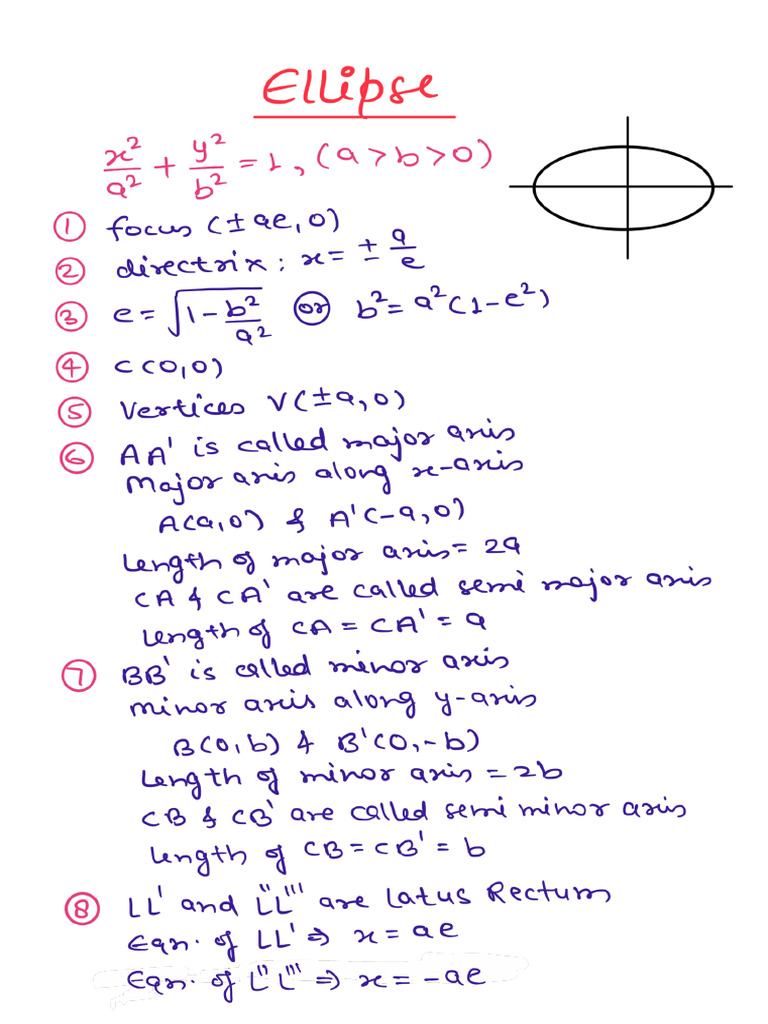 Ellipse
x²/a² + y²/b² = 1, (a > b > 0)
① focus (± ae, 0)
② directrix : x = ± a/e
③ e = √(1 - b²/a²) (or) b² = a² (1 - e²)
④ C(0,0)
⑤ Vertices V(±a, 0)
⑥ AA' is called major axis
Major axis along x-axis
A(a,0) & A'(-a,0)
Length of major axis = 2a
CA & CA' are called semi major axis
Length of CA = CA' = a
⑦ BB' is called minor axis
minor axis along y-axis
B(0,b) & B'(0,-b)
Length of minor axis = 2b
CB & CB' are called semi minor axis
Length of CB = CB' = b
⑧ LL' and L''L''' are Latus Rectum
Eqn. of LL' ⇒ x = ae
Eqn. of L''L''' ⇒ x = -ae